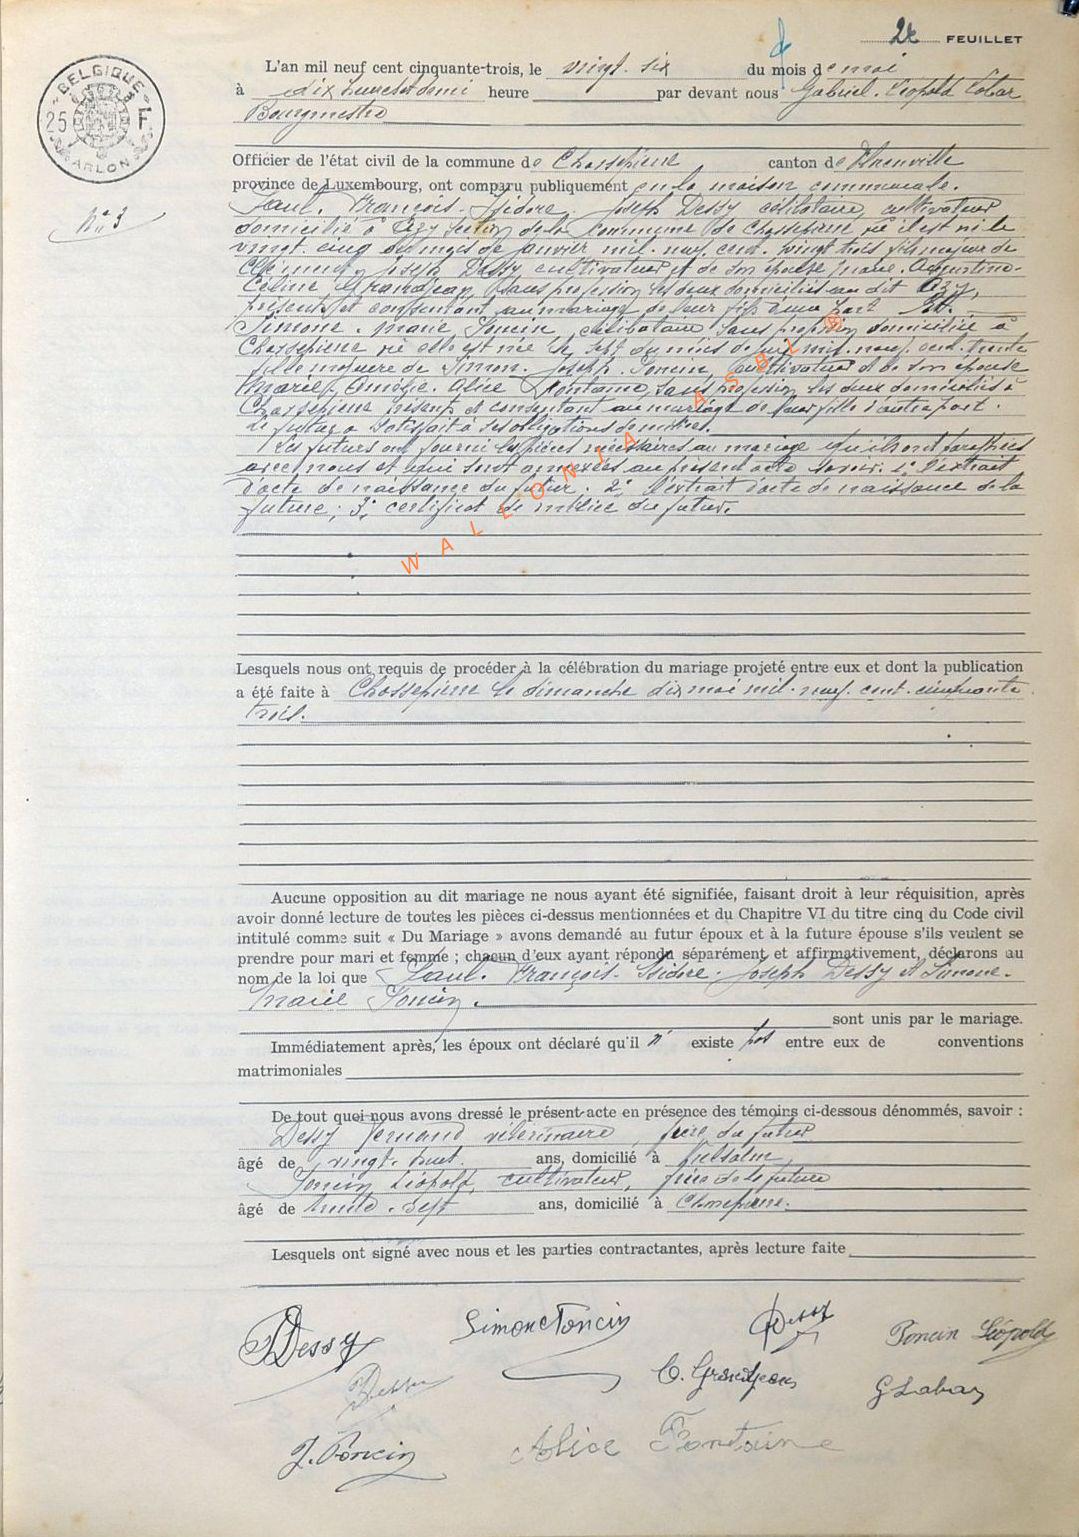 2e FEUILLET
BELGIQUE
25 F
ARLON
L'an mil neuf cent cinquante-trois, le vingt-six du mois de mai
à dix heures et demi heure par devant nous Gabriel-Léopold Labar
Bourgmestre
Officier de l'état civil de la commune de Chassepierre canton de Florenville
province de Luxembourg, ont comparu publiquement en la maison communale.
N° 3
Paul-François-Isidore-Joseph Dessy célibataire, cultivateur
domicilié à Azy section de la commune de Chassepierre où il est né le
vingt-cinq du mois de janvier mil-neuf-cent-vingt trois fils majeur de
Clément-Joseph Dessy cultivateur et de son épouse Marie-Augustine-
Céline Grandjean, sans profession les deux domiciliés au dit Azy,
présents et consentant au mariage de leur fils d'une part Et.
Simone-Marie Poncin, célibataire sans profession domiciliée à
Chassepierre où elle est née le sept du mois de mil-neuf-cent-trente
fille majeure de Simon-Joseph Poncin, cultivateur et de son épouse
Marie-Amélie-Alice Fontaine, sans profession les deux domiciliés à
Chassepierre présents et consentant au mariage de leur fille d'autre part.
Le futur a satisfait à ses obligations de milices.
Les futurs ont fourni les pièces nécessaires au mariage qu'ils ont paraphées
avec nous et qui sont annexées au présent acte savoir: 1° l'extrait
d'acte de naissance du futur. 2° l'extrait d'acte de naissance de la
future; 3° certificat de milice du futur.
WALLONIA ASBL ®
Lesquels nous ont requis de procéder à la célébration du mariage projeté entre eux et dont la publication
a été faite à Chassepierre le dimanche dix mai mil-neuf-cent-cinquante
trois.
Aucune opposition au dit mariage ne nous ayant été signifiée, faisant droit à leur réquisition, après
avoir donné lecture de toutes les pièces ci-dessus mentionnées et du Chapitre VI du titre cinq du Code civil
intitulé comme suit « Du Mariage » avons demandé au futur époux et à la future épouse s'ils veulent se
prendre pour mari et femme ; chacun d'eux ayant répondu séparément et affirmativement, déclarons au
nom de la loi que Paul-François-Isidore-Joseph Dessy et Simone-
Marie Poncin.
sont unis par le mariage.
Immédiatement après, les époux ont déclaré qu'il n' existe pas entre eux de conventions
matrimoniales
De tout quoi nous avons dressé le présent acte en présence des témoins ci-dessous dénommés, savoir :
Dessy Fernand vétérinaire, frère du futur
âgé de vingt-huit ans, domicilié à Vielsalm,
Poncin Léopold, cultivateur, frère de la future
âgé de trente-sept ans, domicilié à Chassepierre.
Lesquels ont signé avec nous et les parties contractantes, après lecture faite
PDessy Simone Poncin Dessy Poncin Léopold
Dessy C. Grandjean G Labar
J. Poncin Alice Fontaine